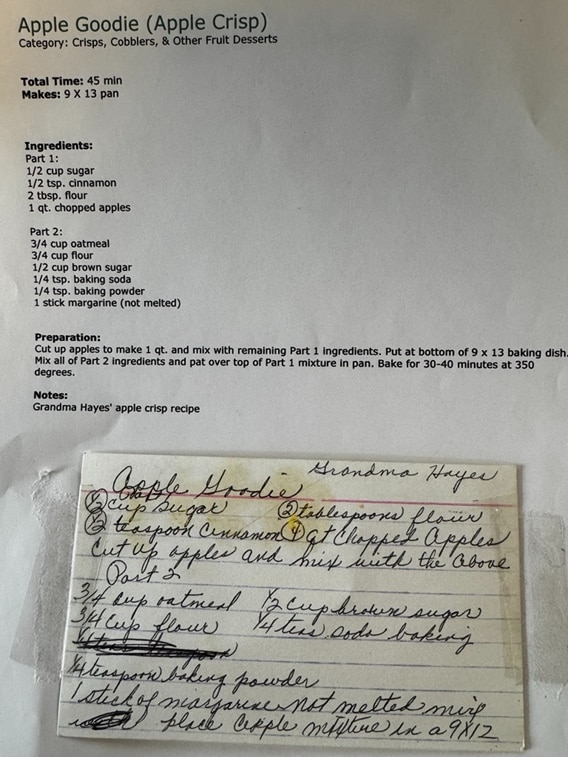 Apple Goodie (Apple Crisp)
Category: Crisps, Cobblers, & Other Fruit Desserts
Total Time: 45 min
Makes: 9 X 13 pan
Ingredients:
Part 1:
1/2 cup sugar
1/2 tsp. cinnamon
2 tbsp. flour
1 qt. chopped apples
Part 2:
3/4 cup oatmeal
3/4 cup flour
1/2 cup brown sugar
1/4 tsp. baking soda
1/4 tsp. baking powder
1 stick margarine (not melted)
Preparation:
Cut up apples to make 1 qt. and mix with remaining Part 1 ingredients. Put at bottom of 9 x 13 baking dish.
Mix all of Part 2 ingredients and pat over top of Part 1 mixture in pan. Bake for 30-40 minutes at 350
degrees.
Notes:
Grandma Hayes' apple crisp recipe
Grandma Hayes
Apple Goodie
1/2 cup Sugar 2 tablespoons flour
1/2 teaspoon Cinnamon qt Chopped Apples
Cut up apples and mix with the above
Part 2
3/4 cup oatmeal 1/2 cup brown sugar
3/4 cup flour 1/4 teas soda baking
1/4 teaspoon baking powder
1 stick of margarine not melted mix
place apple mixture in a 9X12